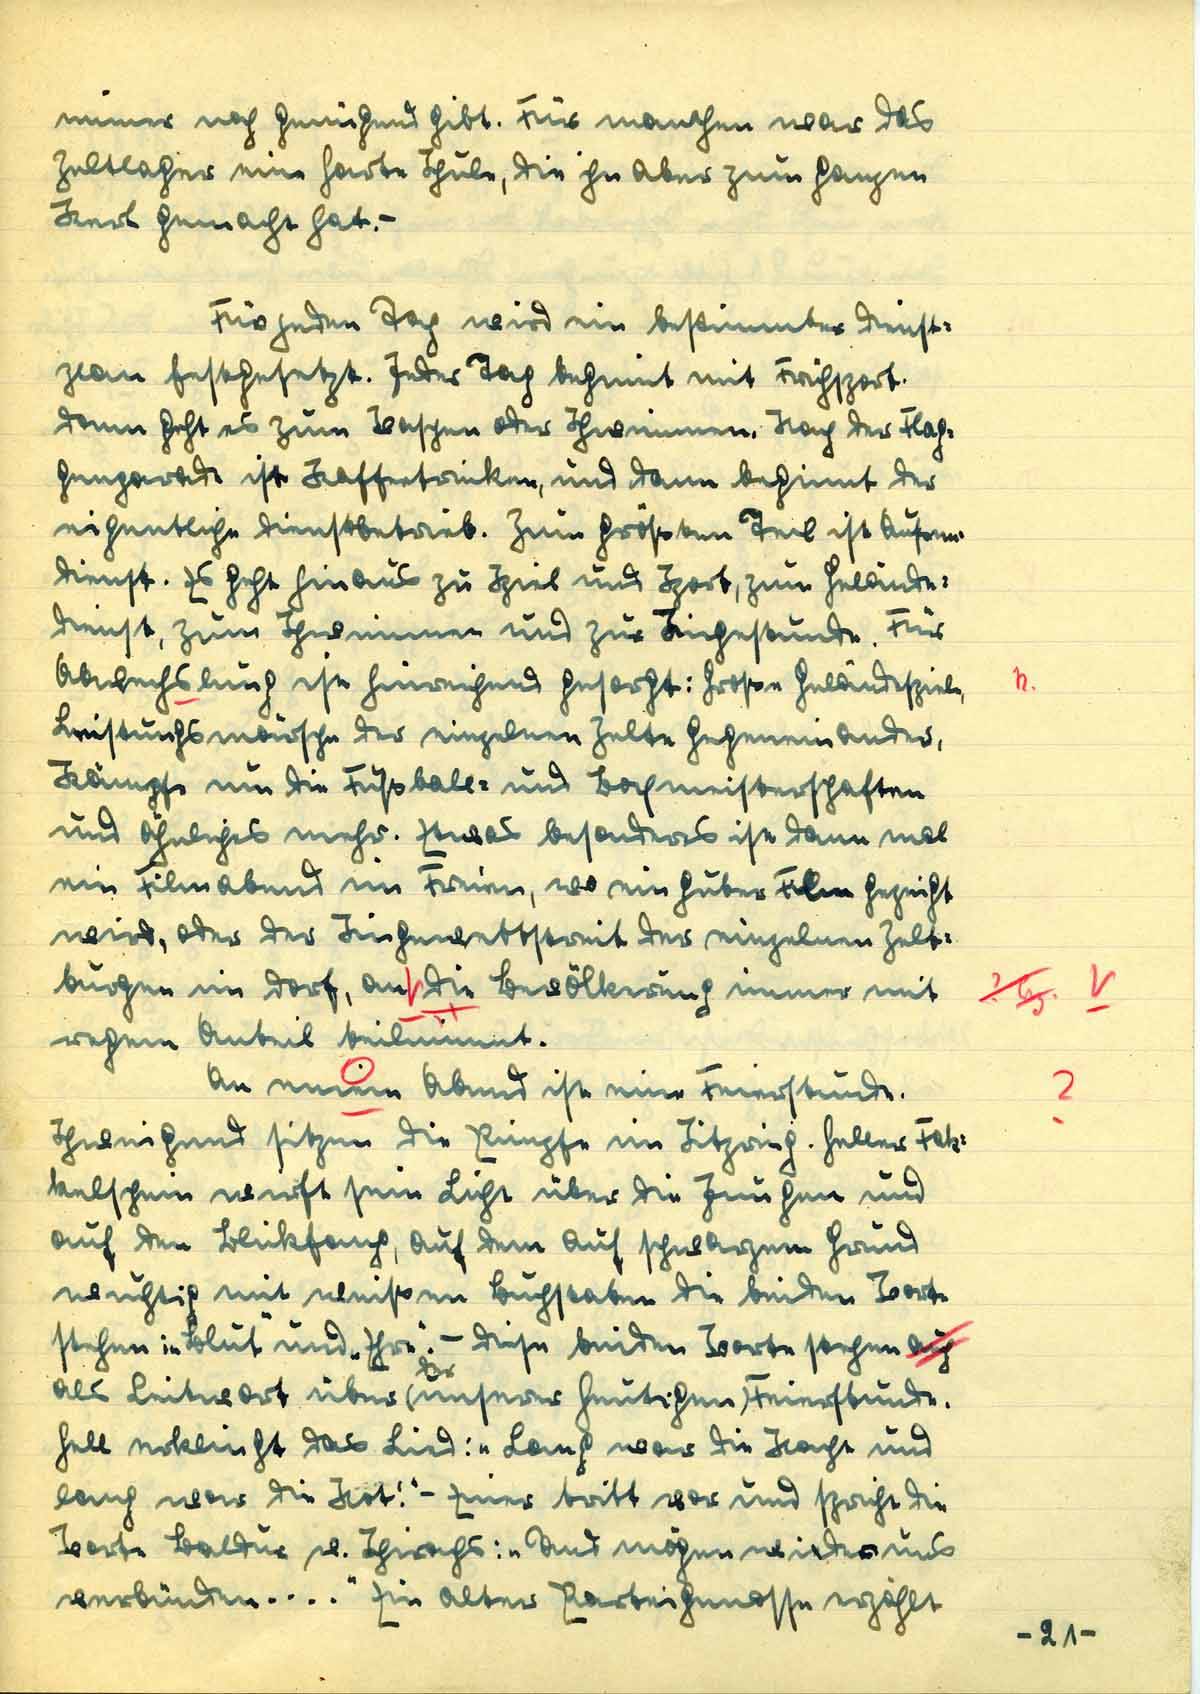 immer noch genügend gibt. Für manchen war das
Zeltlager eine harte Schule, die ihn aber zum ganzen
Kerl gemacht hat.-
Für jeden Tag wird ein bestimmter Dienst=
plan festgesetzt. Jeder Tag beginnt mit Frühsport.
Dann geht es zum Waschen oder Schwimmen. Nach der Flag=
genparade ist Kaffeetrinken, und dann beginnt der
eigentliche Dienstbetrieb. Zum größten Teil ist Außen=
dienst. Es geht hinaus zu Spiel und Sport, zum Gelände=
dienst, zum Schwimmen und zur Singestunde. Für
Abwechslung ist hinreichend gesorgt: Große Geländespiele, n.
Leistungsmärsche der einzelnen Zelte gegeneinander,
Kämpfe um die Fußball= und Boxmeisterschaften
und ähnliches mehr. Etwas besonderes ist dann mal
ein Filmabend im Freien, wo ein guter Film gezeigt
wird, oder der Singewettstreit der einzelnen Zelt=
burgen im Dorf, an V die Bevölkerung immer mit V
regem Anteil teilnimmt.
An einem Abend ist eine Feierstunde. ?
Schweigend sitzen die Pimpfe im Sitzring. Heller Fak=
kelschein wirft sein Licht über die Jungen und
auf den Blickfang, auf dem auf schwarzem Grund
wuchtig mit weißen Buchstaben die beiden Worte
stehen: „Blut" und „Ehre". - Diese beiden Worte stehen auch
der
als Leitwort über (unserer heutigen) Feierstunde.
Hell erklingt das Lied: „Lang war die Nacht und
lang war die Not!" - Einer tritt vor und spricht die
Worte Baldur v. Schirachs: „Und mögen wider uns
verbünden...." Ein alter Parteigenosse erzählt
-21-